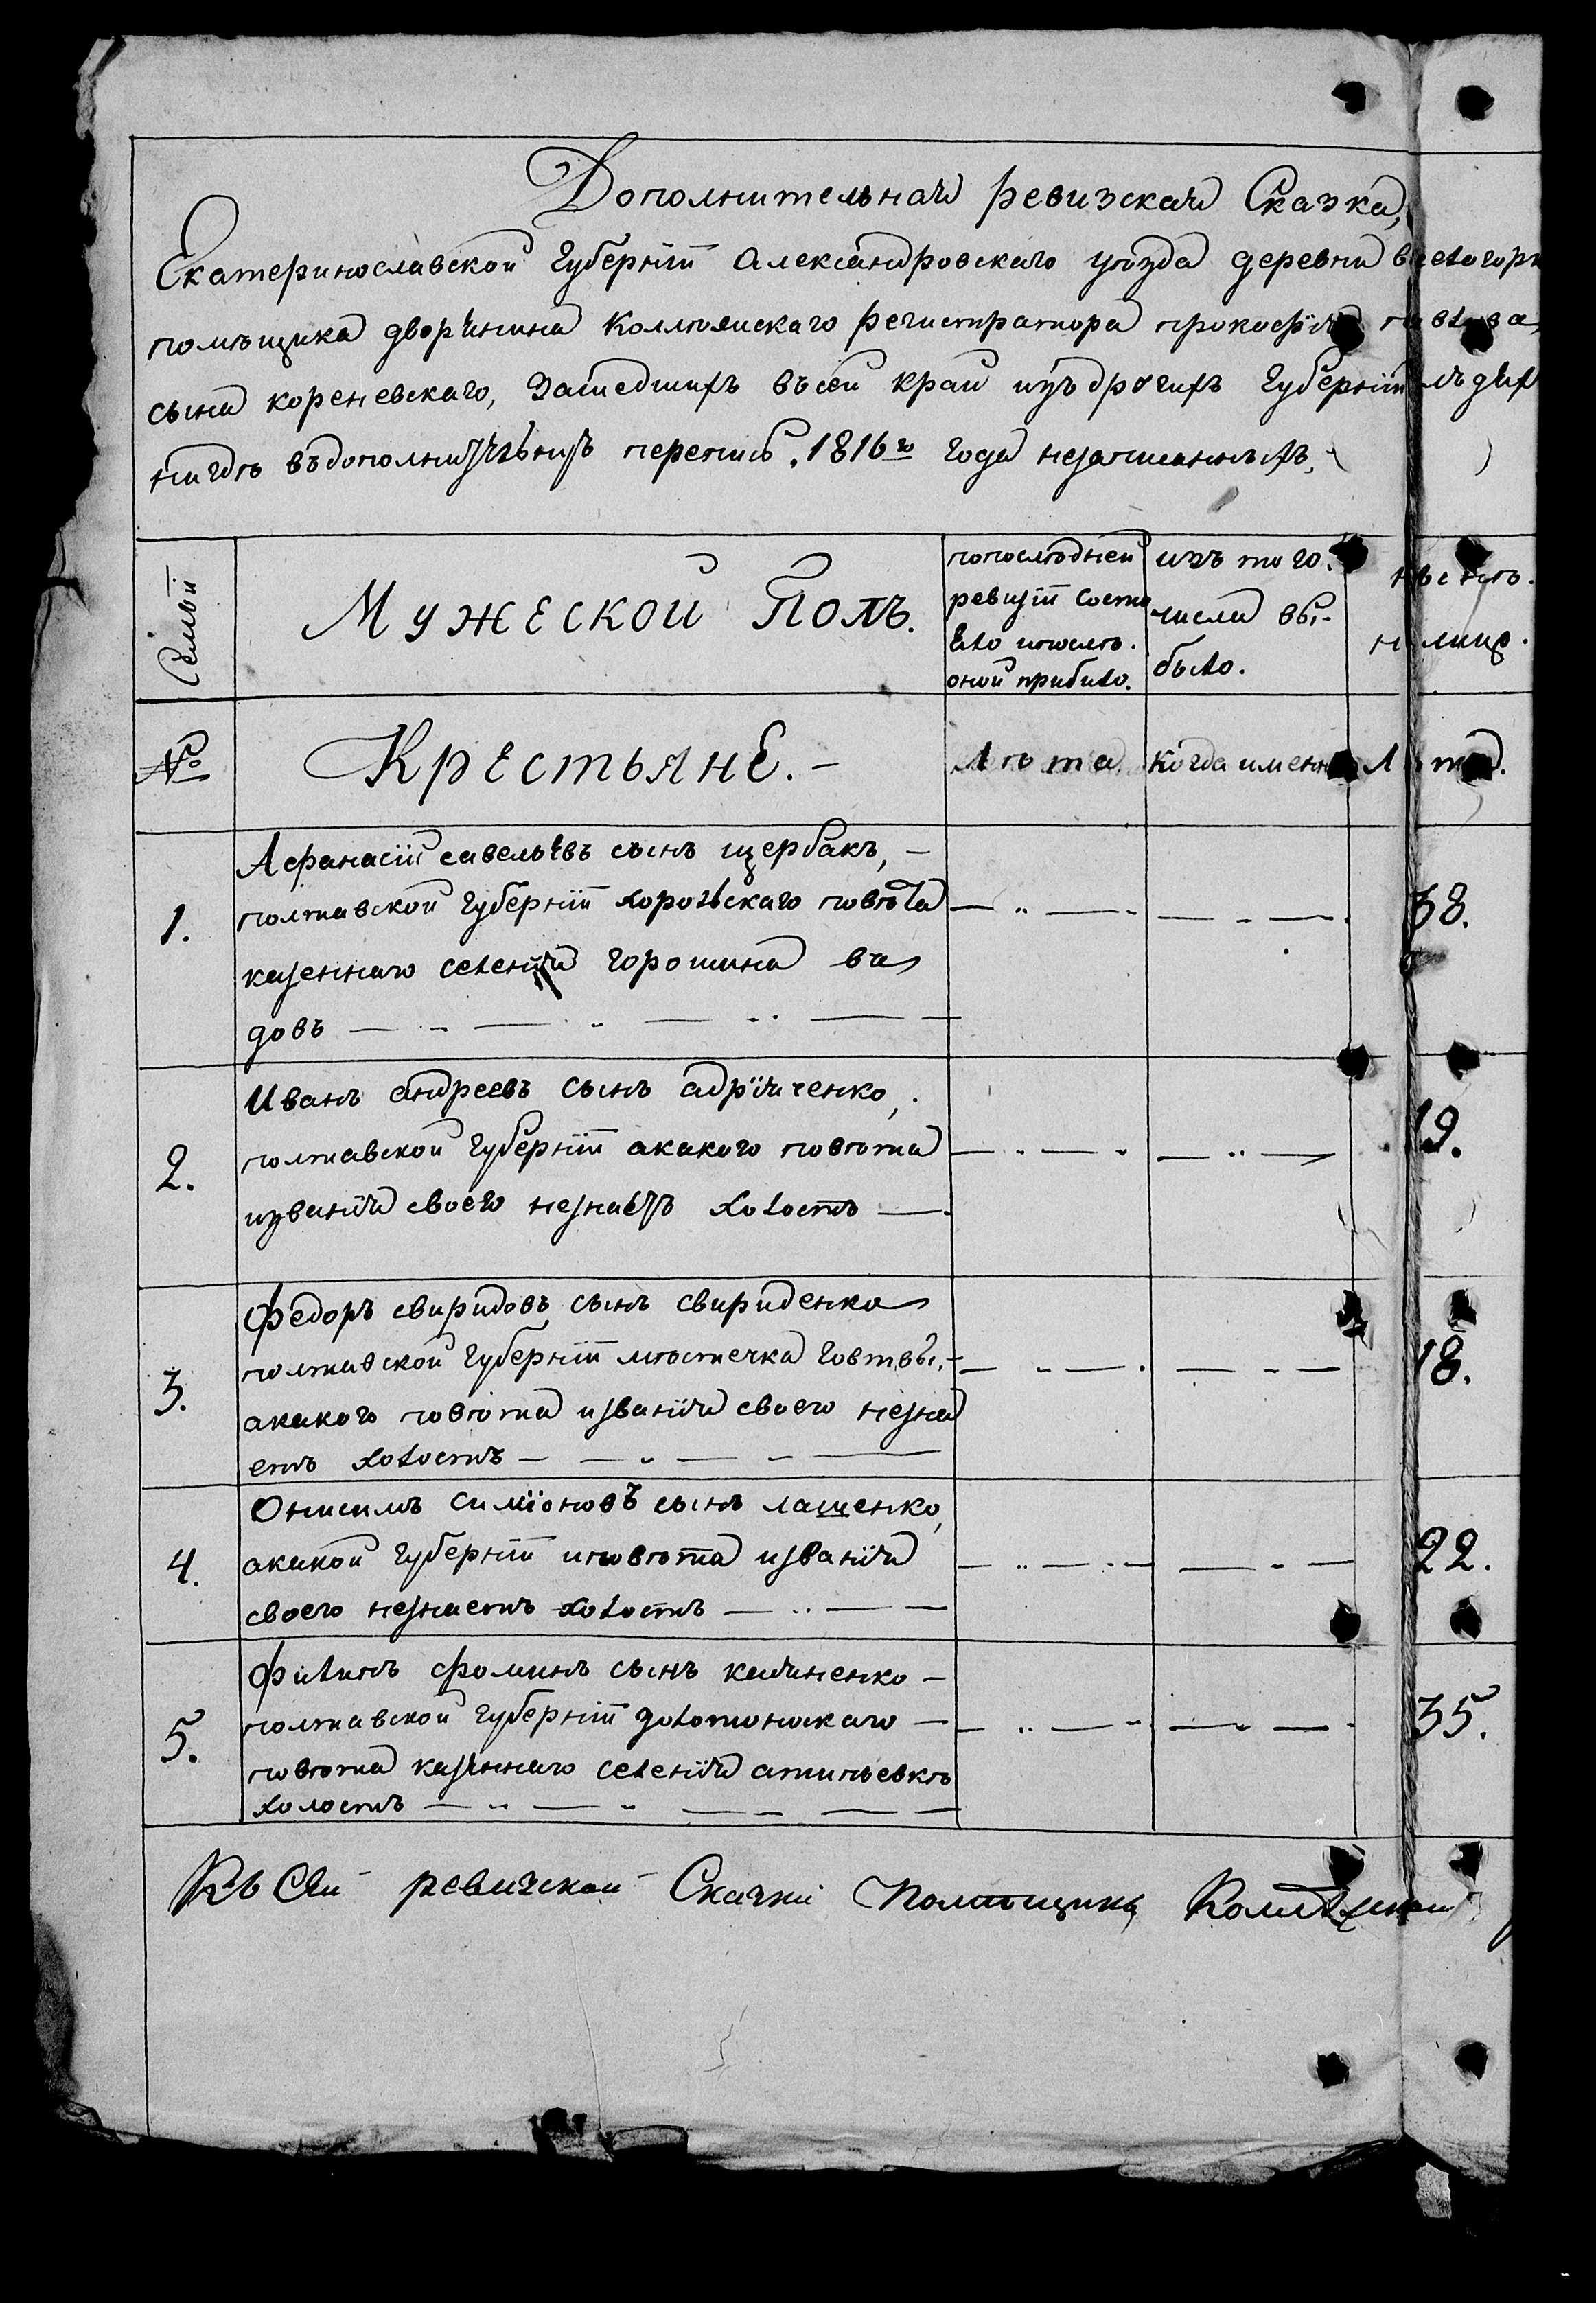 Дополнительная ревизская Сказка,
Екатеринославской губернїи Александровского уѣзда деревни
помѣщика дворянина коллѣжскаго регистратора прокофїя павлова
сына кореневскаго, зашедшихъ въсей край изъ другихъ губернїи
нигдѣ въдополнительнихъ перепись. 1816го года незаписанныхъ,
Семьи
Мужеской Полъ.
попослѣдней
ревизїи состо
яло ипослѣ.
оной прибило.
изъ того.
числа вы-
было.
нынѣ.
налицо.
№
Крестьяне.-
Лѣта.
когда именно
Лѣта.
1.
Афанасїй савельевъ сынъ щербакъ, -
полтавской губернїи хорольскаго повѣта
казеннаго селенїя горошина ва
довъ
38.
2.
Иванъ андреевъ сынъ адрїяченко,
полтавской губернїи акакого повѣта
изванїя своего незнаетъ холостъ
19.
3.
Федоръ свиридовъ сынъ свириденко
полтавской губернїи мѣстечка говтвы,-
акакого повѣта изванїя своего незна
етъ холостъ
18.
4.
Онисимъ симїоновъ сынъ лащенко,
акакой губернїи иповѣта изванїя
своего незнаетъ холостъ
22.
5.
Филипъ фоминъ сынъ калиненко -
полтавской губернїи золотоноскаго
повѣта казеннаго селенїя
холостъ
35.
Къ сей ревизской Сказки Помѣщикъ